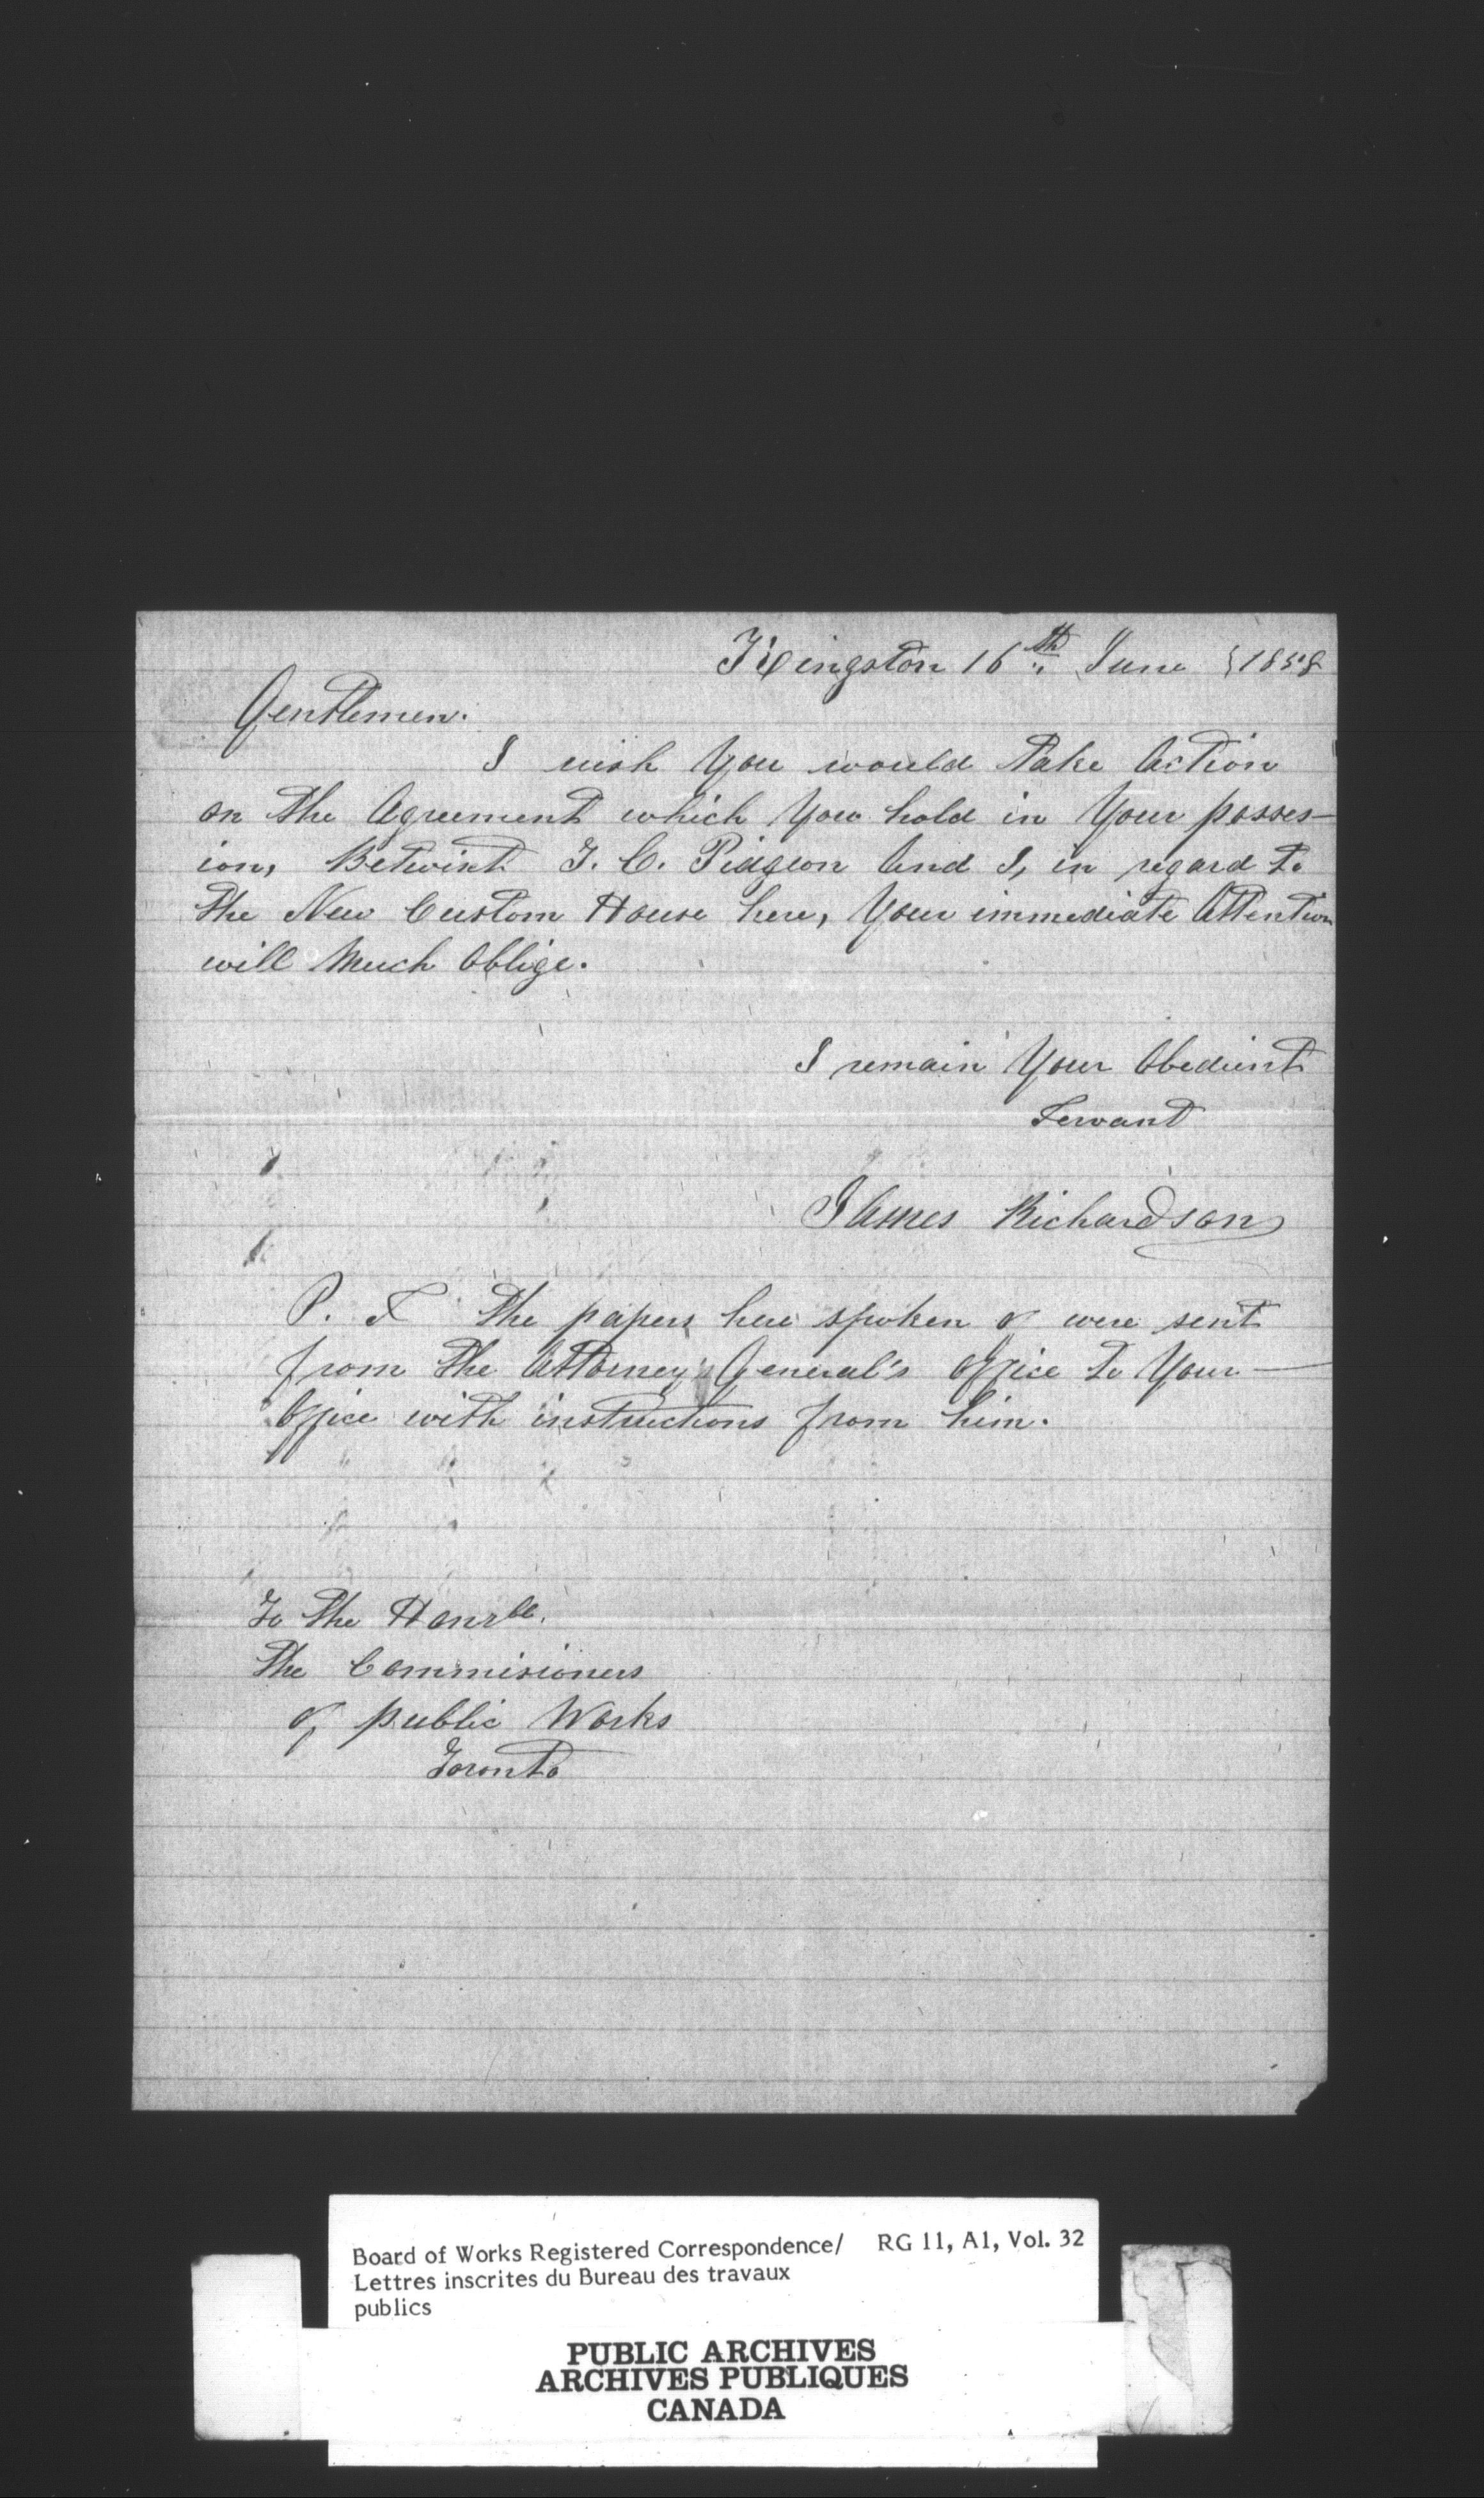 Kingston 16th June 1858
Gentlemen.
I wish You would Take Action
on The Agreement which You hold in Your posses-
ion, Betwixt T. C. Pidgeon And I, in regard To
The New Custom House here, Your immediate Attention
will Much Oblige.
I remain Your Obedient
Servant
James Richardson
P. S The papers here spoken of were sent
from The Attorney General's office To Your
Office with instructions from him.
To The Honrble.
The Commisioners
of public Works
Toronto
Board of Works Registered Correspondence/ RG 11, A1, Vol. 32
Lettres inscrites du Bureau des travaux
publics
PUBLIC ARCHIVES
ARCHIVES PUBLIQUES
CANADA